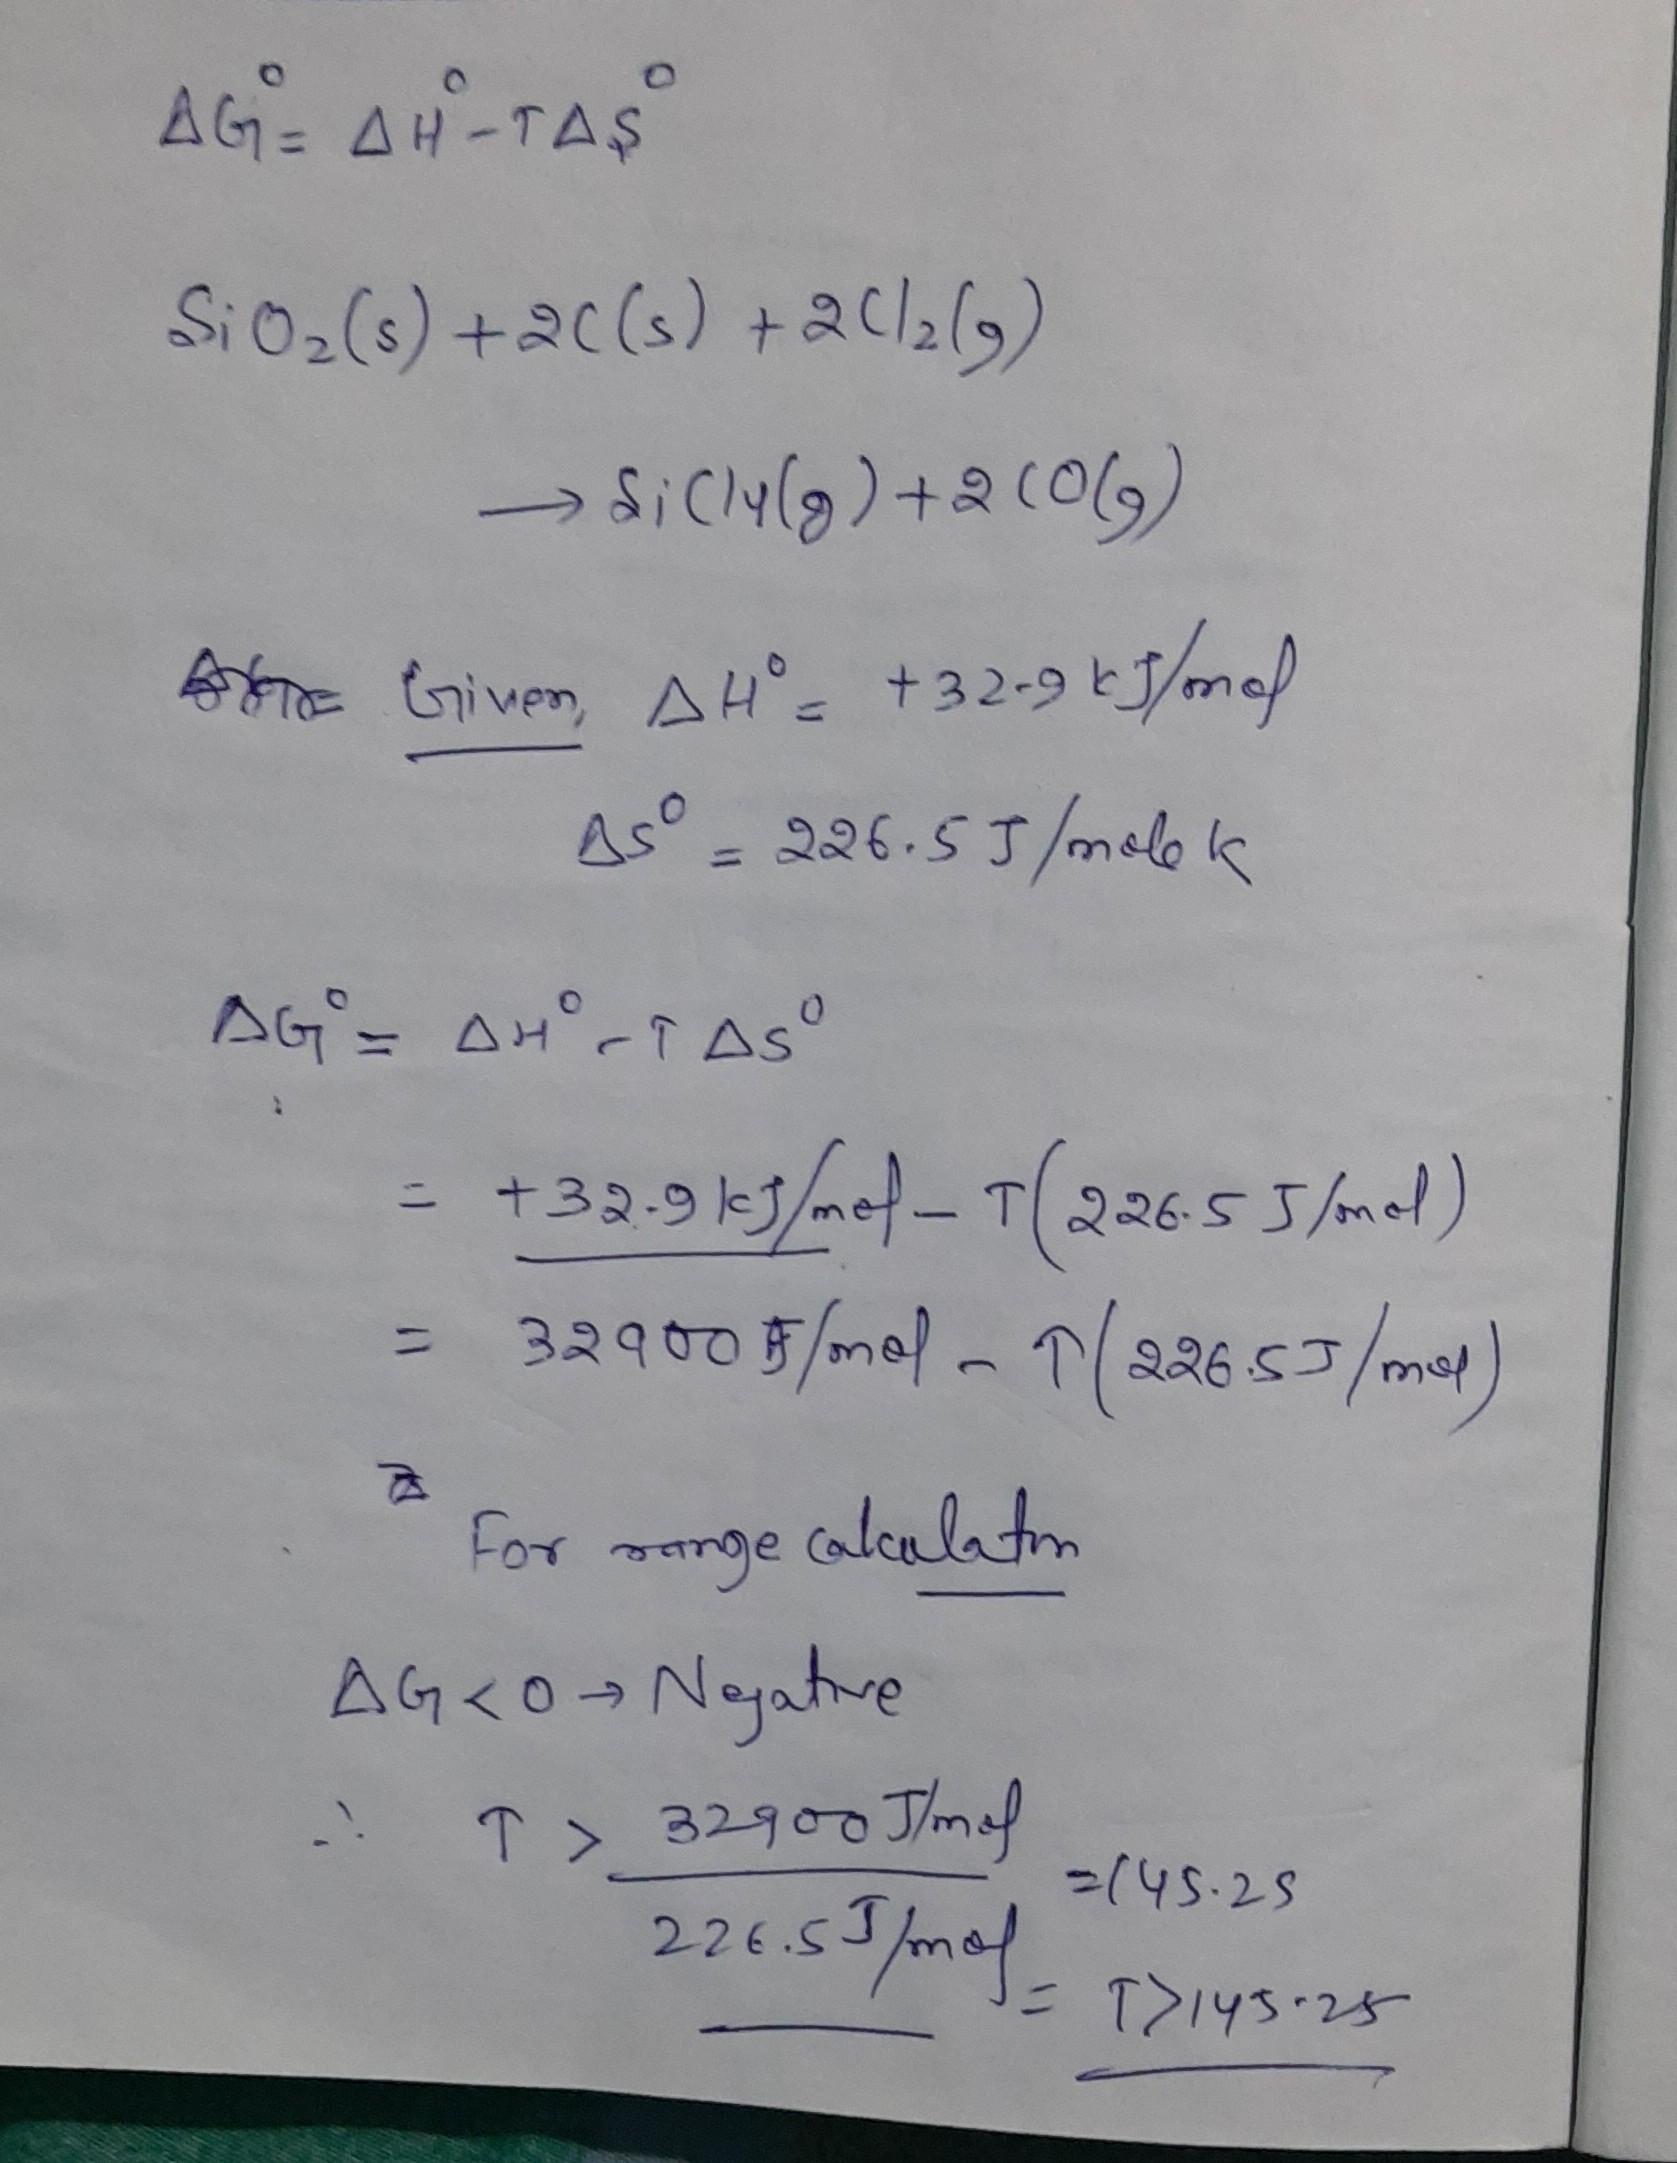 ΔG° = ΔH° - TΔS°
SiO₂(s) + 2C(s) + 2Cl₂(g)
→ SiCl₄(g) + 2CO(g)
Given, ΔH° = +32.9 kJ/mol
ΔS° = 226.5 J/mole K
ΔG° = ΔH° - TΔS°
= +32.9 kJ/mol - T(226.5 J/mol)
= 32900 J/mol - T(226.5 J/mol)
For range calculation
ΔG < 0 → Negative
∴ T > 32900 J/mol
= 145.25
226.5 J/mol
= T > 145.25